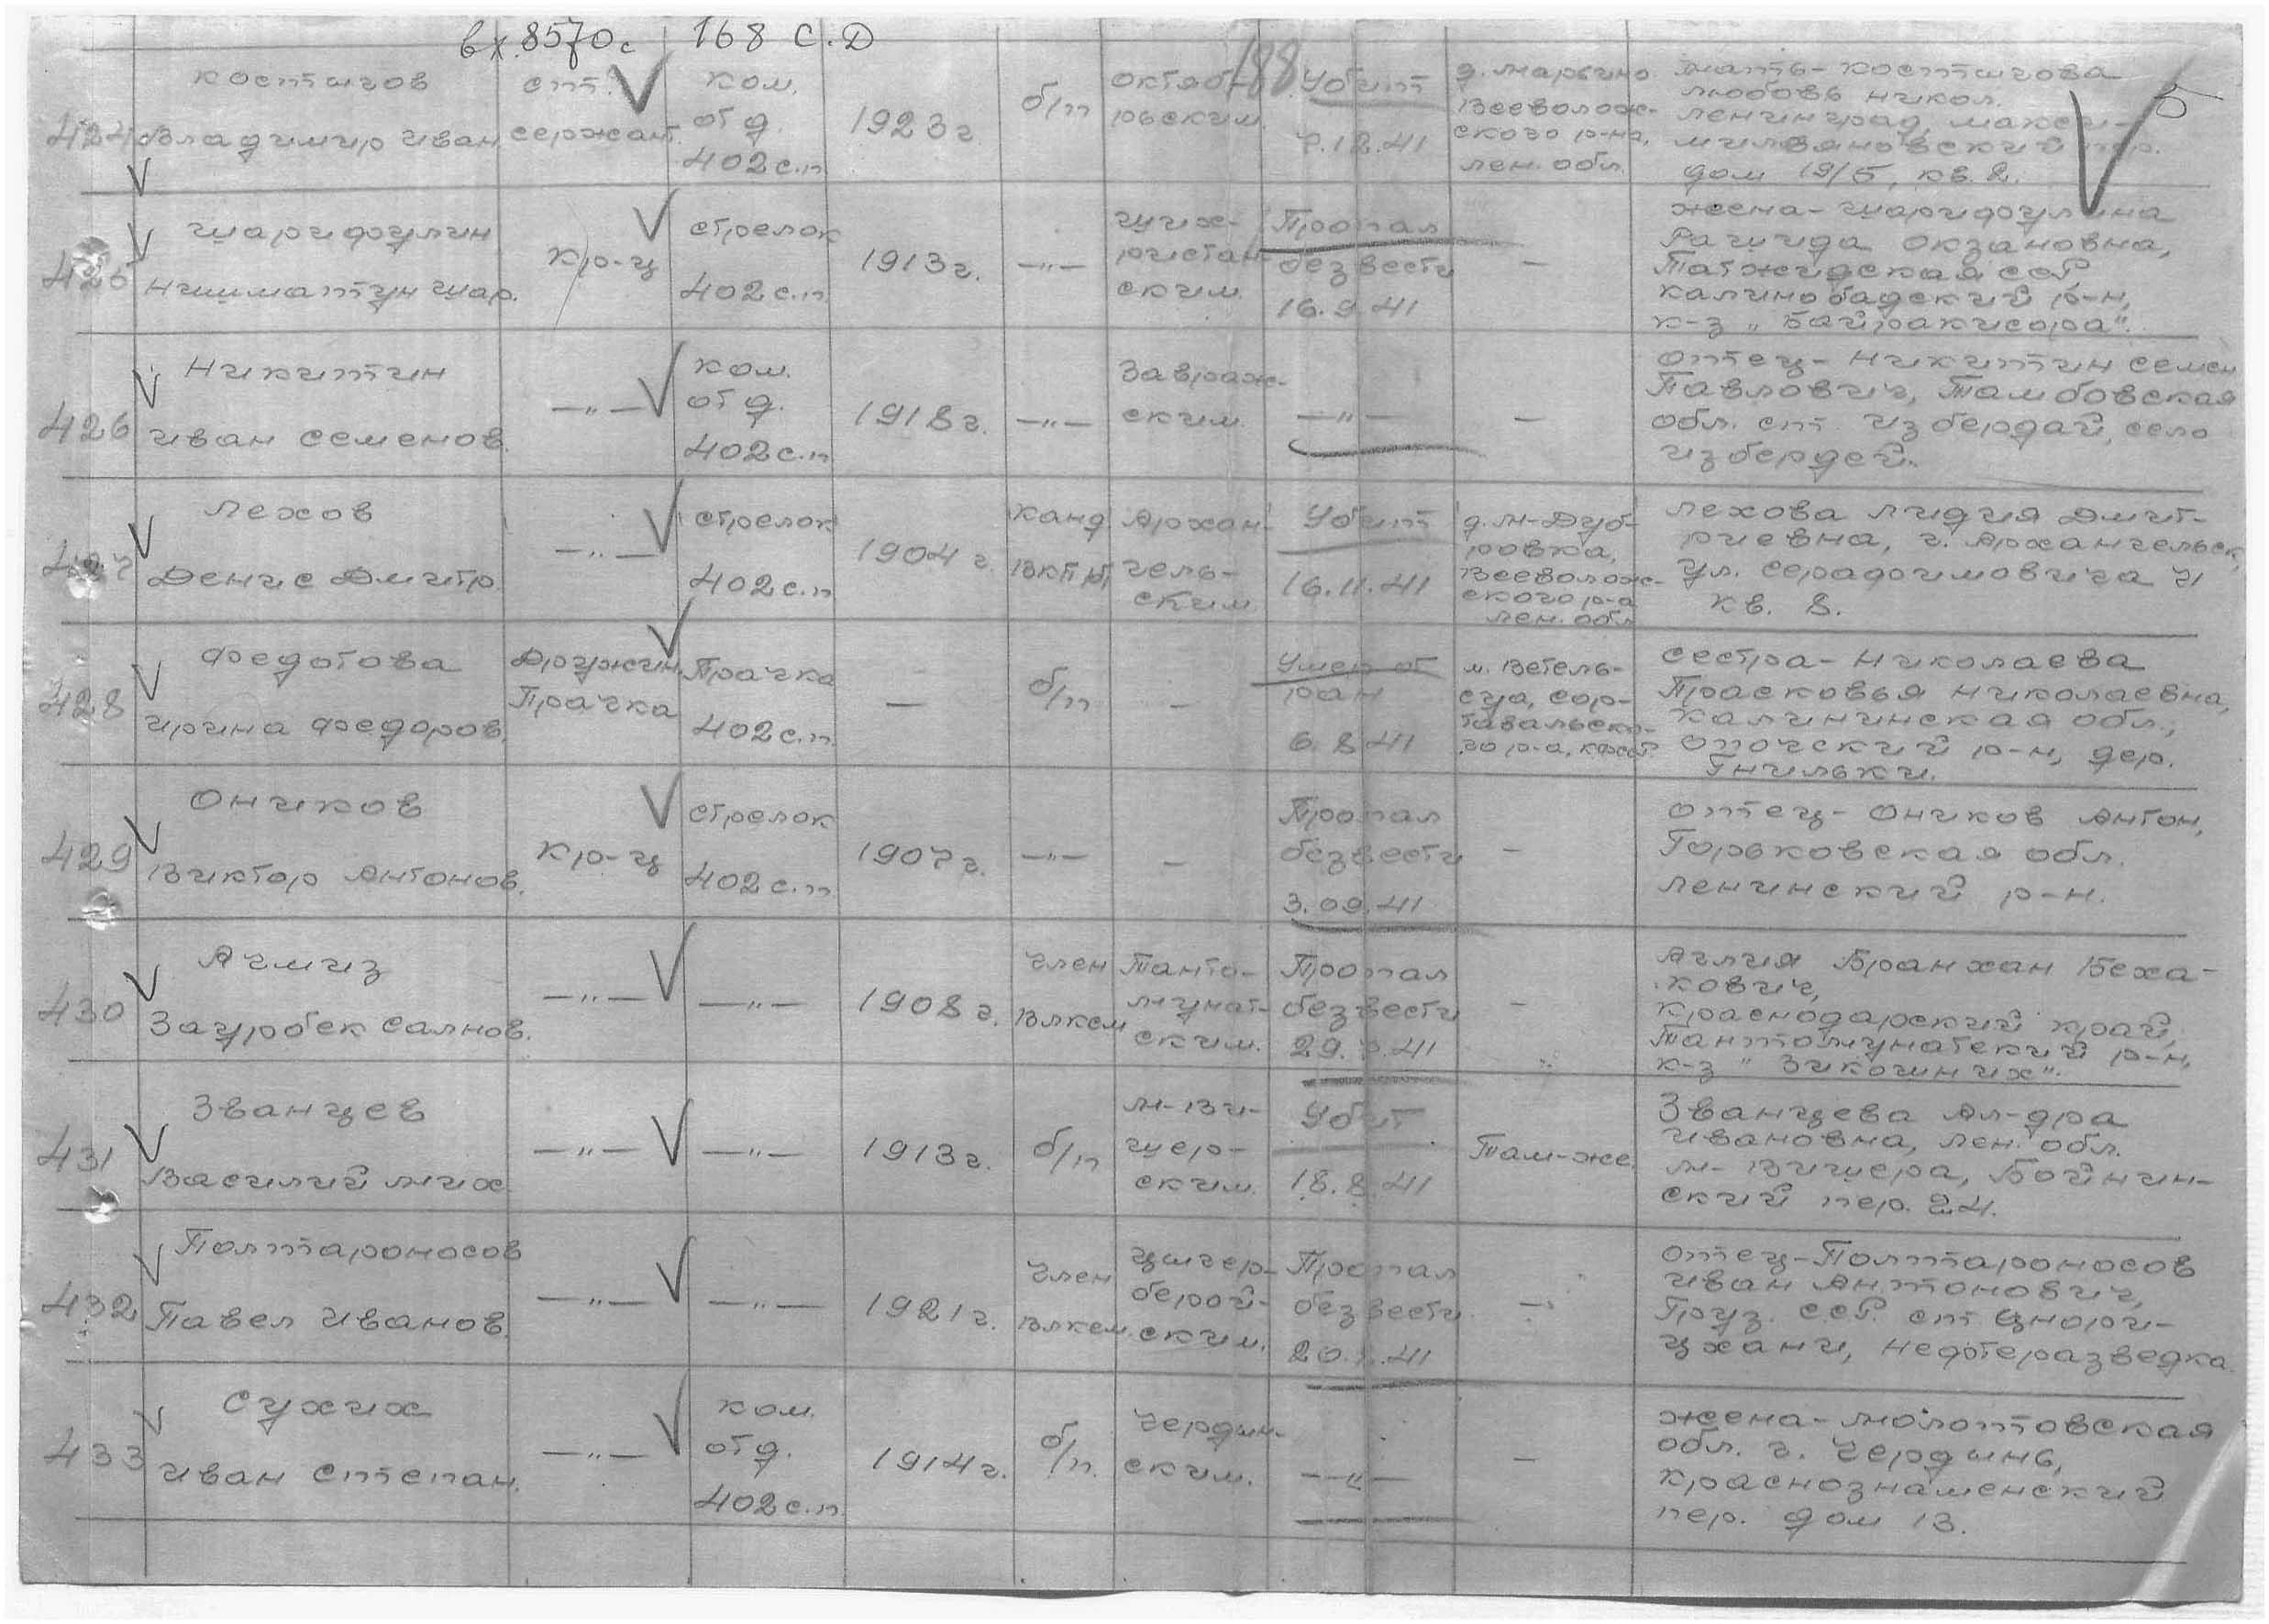 вх. 8570с 168 С.Д
188
5
424 Костыгов Владимир Иван. ст. сержант. ком. отд. 402 с.п. 1923 г. б/п Октябрьским. Убит 7.12.41 д. Марьино Всеволожского р-на, Лен. обл. Мать - Костыгова
Любовь Никол.
Ленинград, Макси-
милиановский пер.
дом 19/5, кв. 2.
425 Шарифулин Нишматун Шар. кр-ц стрелок 402 с.п. 1913 г. —"— Пропал без вести 16.9.41 — жена - Шарифулина
Рашида
Таджикская ССР,
Калинобадский р-н,
к-з „Байракисора".
426 Никитин Иван Семенов. —"— ком. отд. 402 с.п. 1918 г. —"— Завражским. —"— — отец - Никитин Семен
Павлович, Тамбовская
обл. ст. Избердей, село
Избердей.
427 Лехов Денис Дмитр. —"— стрелок 402 с.п. 1904 г. канд ВКП(б) Архангельским Убит 16.11.41 д. М-Дубровка, Всеволожского р-а Лен. обл Лехова Лидия Дмит-
риевна, г. Архангельск,
ул. Серафимовича 71
кв. 8.
428 Федотова Ирина Федоров. Дружин. Прачка Прачка 402 с.п. — б/п — Умер от ран 6.8.41 Сортавальского р-а, КФССР Сестра - Николаева
Прасковья Николаевна,
Калининская обл.,
Опочский р-н, дер.
Гнильки.
429 Ончков Виктор Антонов. кр-ц стрелок 402 с.п. 1907 г. —"— — Пропал без вести 3.09.41 — отец - Ончков Антон,
Горьковская обл.
Ленинский р-н.
430 Ачмиз Заурбек Салнов. —"— —"— 1908 г. член ВЛКСМ Пропал без вести 29. .41 — Бранхан Беха-
кович,
Краснодарский край,
р-н,
к-з
431 Званцев Василий Мих. —"— —"— 1913 г. б/п М-Вишерским. Убит 18.8.41 Там-же. Званцева Ал-дра
Ивановна, Лен. обл.
М-Вишера, Бойнин-
ский пер. 24.
432 Полтароносов Павел Иванов. —"— —"— 1921 г. член ВЛКСМ. Пропал без вести 20. .41 — отец - Полтароносов
Иван Антонович,
Груз. ССР. ст Цнори-
цхали, Нефтеразведка
433 Сухих Иван Степан. —"— ком. отд. 402 с.п. 1914 г. б/п. Чердынским. —"— — жена - Молотовская
обл. г. Чердынь,
Краснознаменский
пер. дом 13.